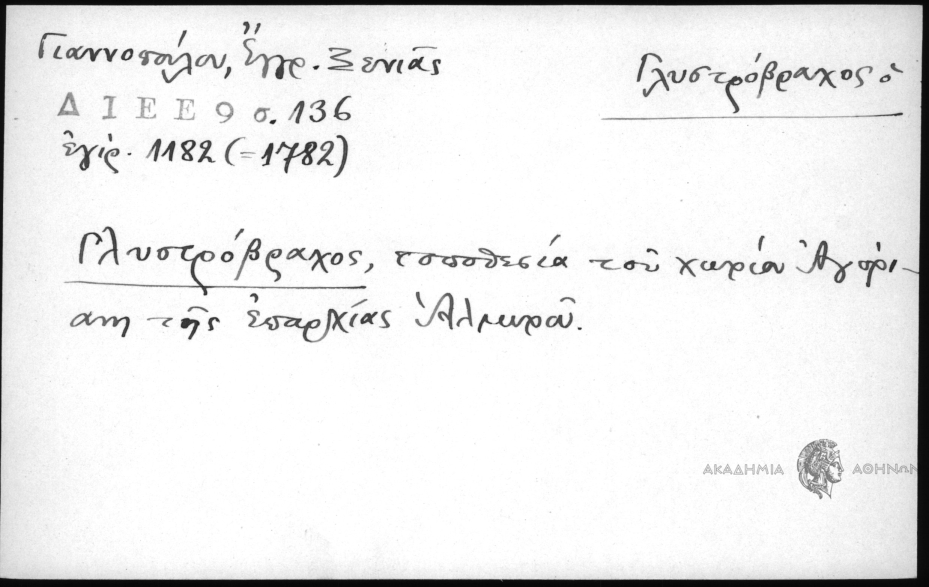 Γιαννοπούλου, Ἔγγρ. Ξενιᾶς
Γλυστρόβραχος ὁ
Δ Ι Ε Ε 9 σ. 136
ἐγίρ. 1182 (=1782)
Γλυστρόβραχος, τοποθεσία τοῦ χωρίου Ἀγόρι-
ανη τῆς ἐπαρχίας Ἁλμυροῦ.
ΑΚΑΔΗΜΙΑ ΑΘΗΝΩΝ